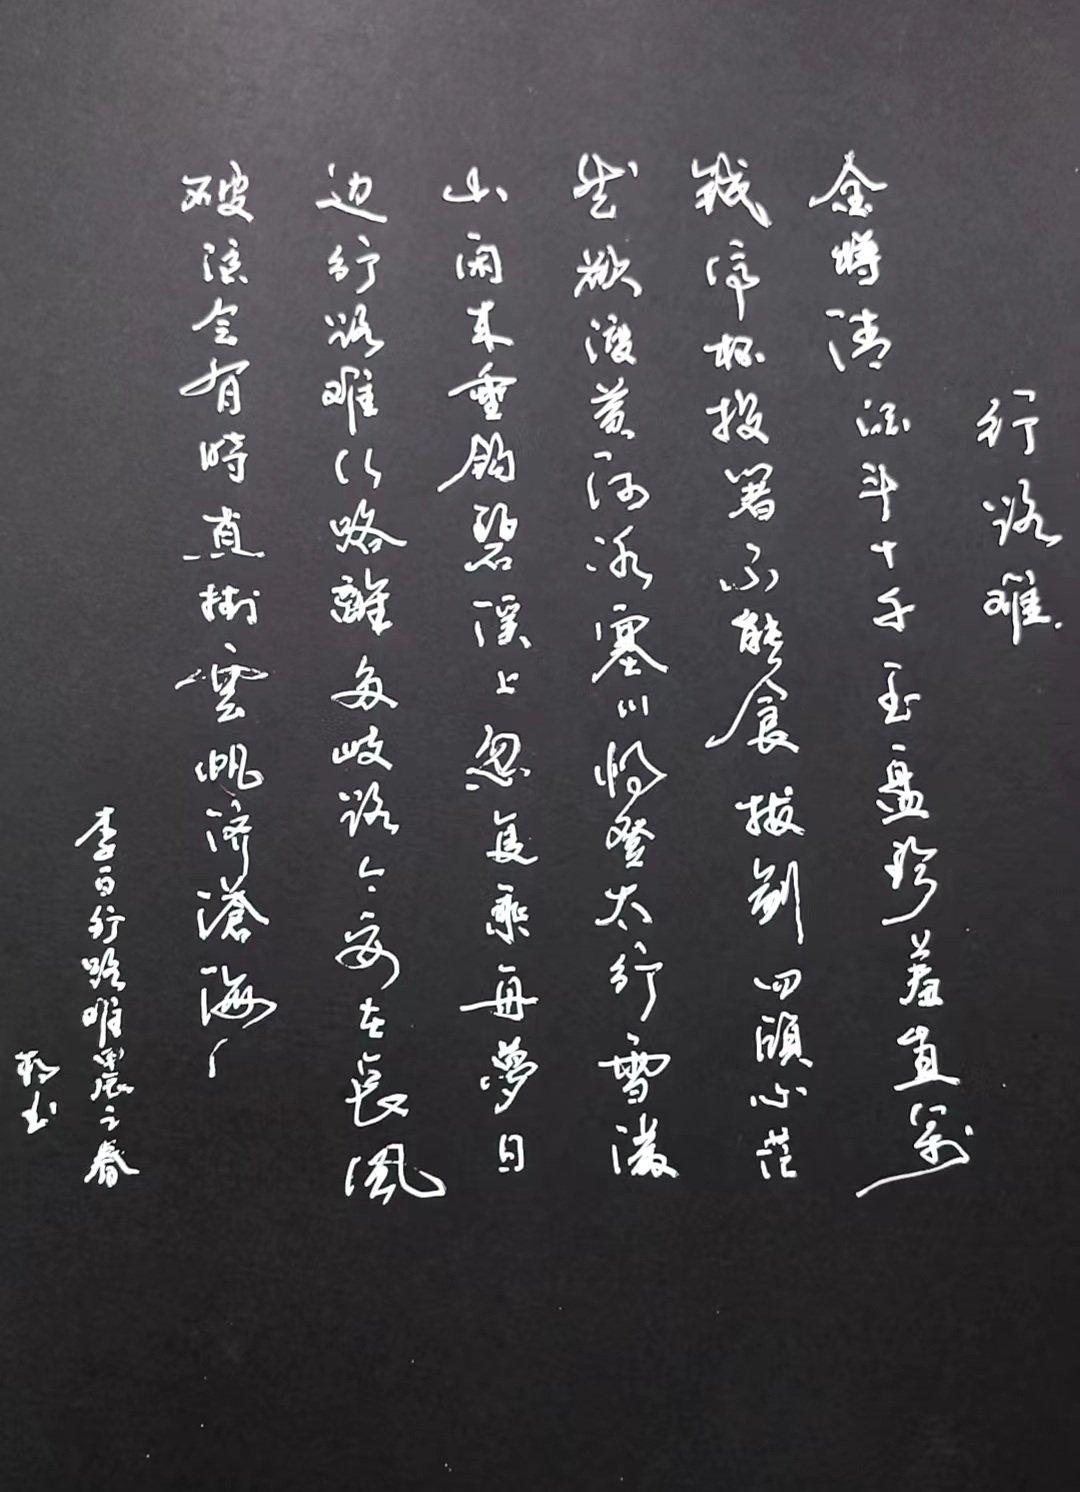 行路难
金樽清酒斗十千玉盘珍羞直萬
钱停杯投箸不能食拔剑四顾心茫
茫欲渡黄河冰塞川将登太行雪满
山闲来垂钓碧溪上忽复乘舟夢日
边行路难行路難多岐路今安在長風
破浪会有時直掛雲帆济滄海
李白行路难丙辰之春